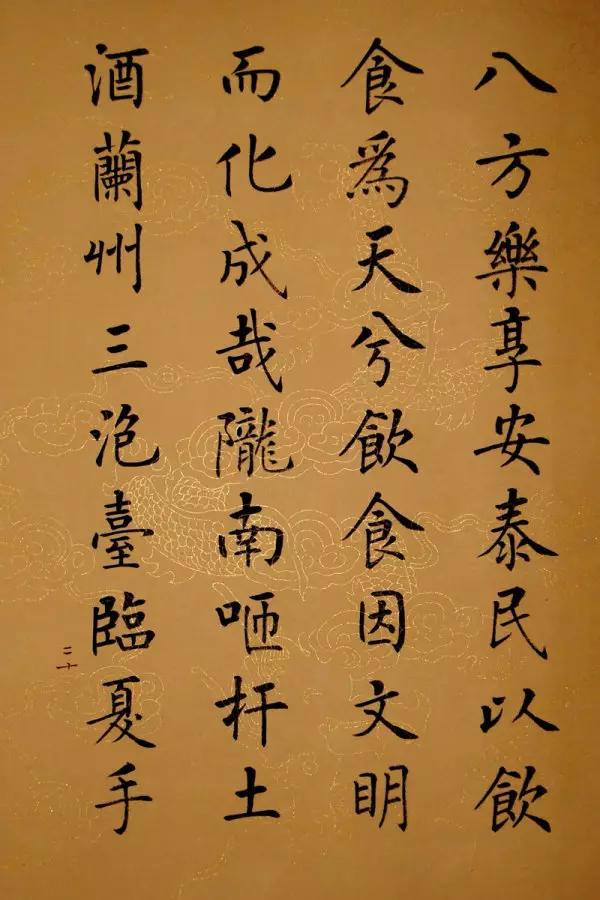 八方樂享安泰民以飲
食爲天兮飲食因文眀
而化成哉隴南咂杆土
酒蘭州三泡臺臨夏手
二十